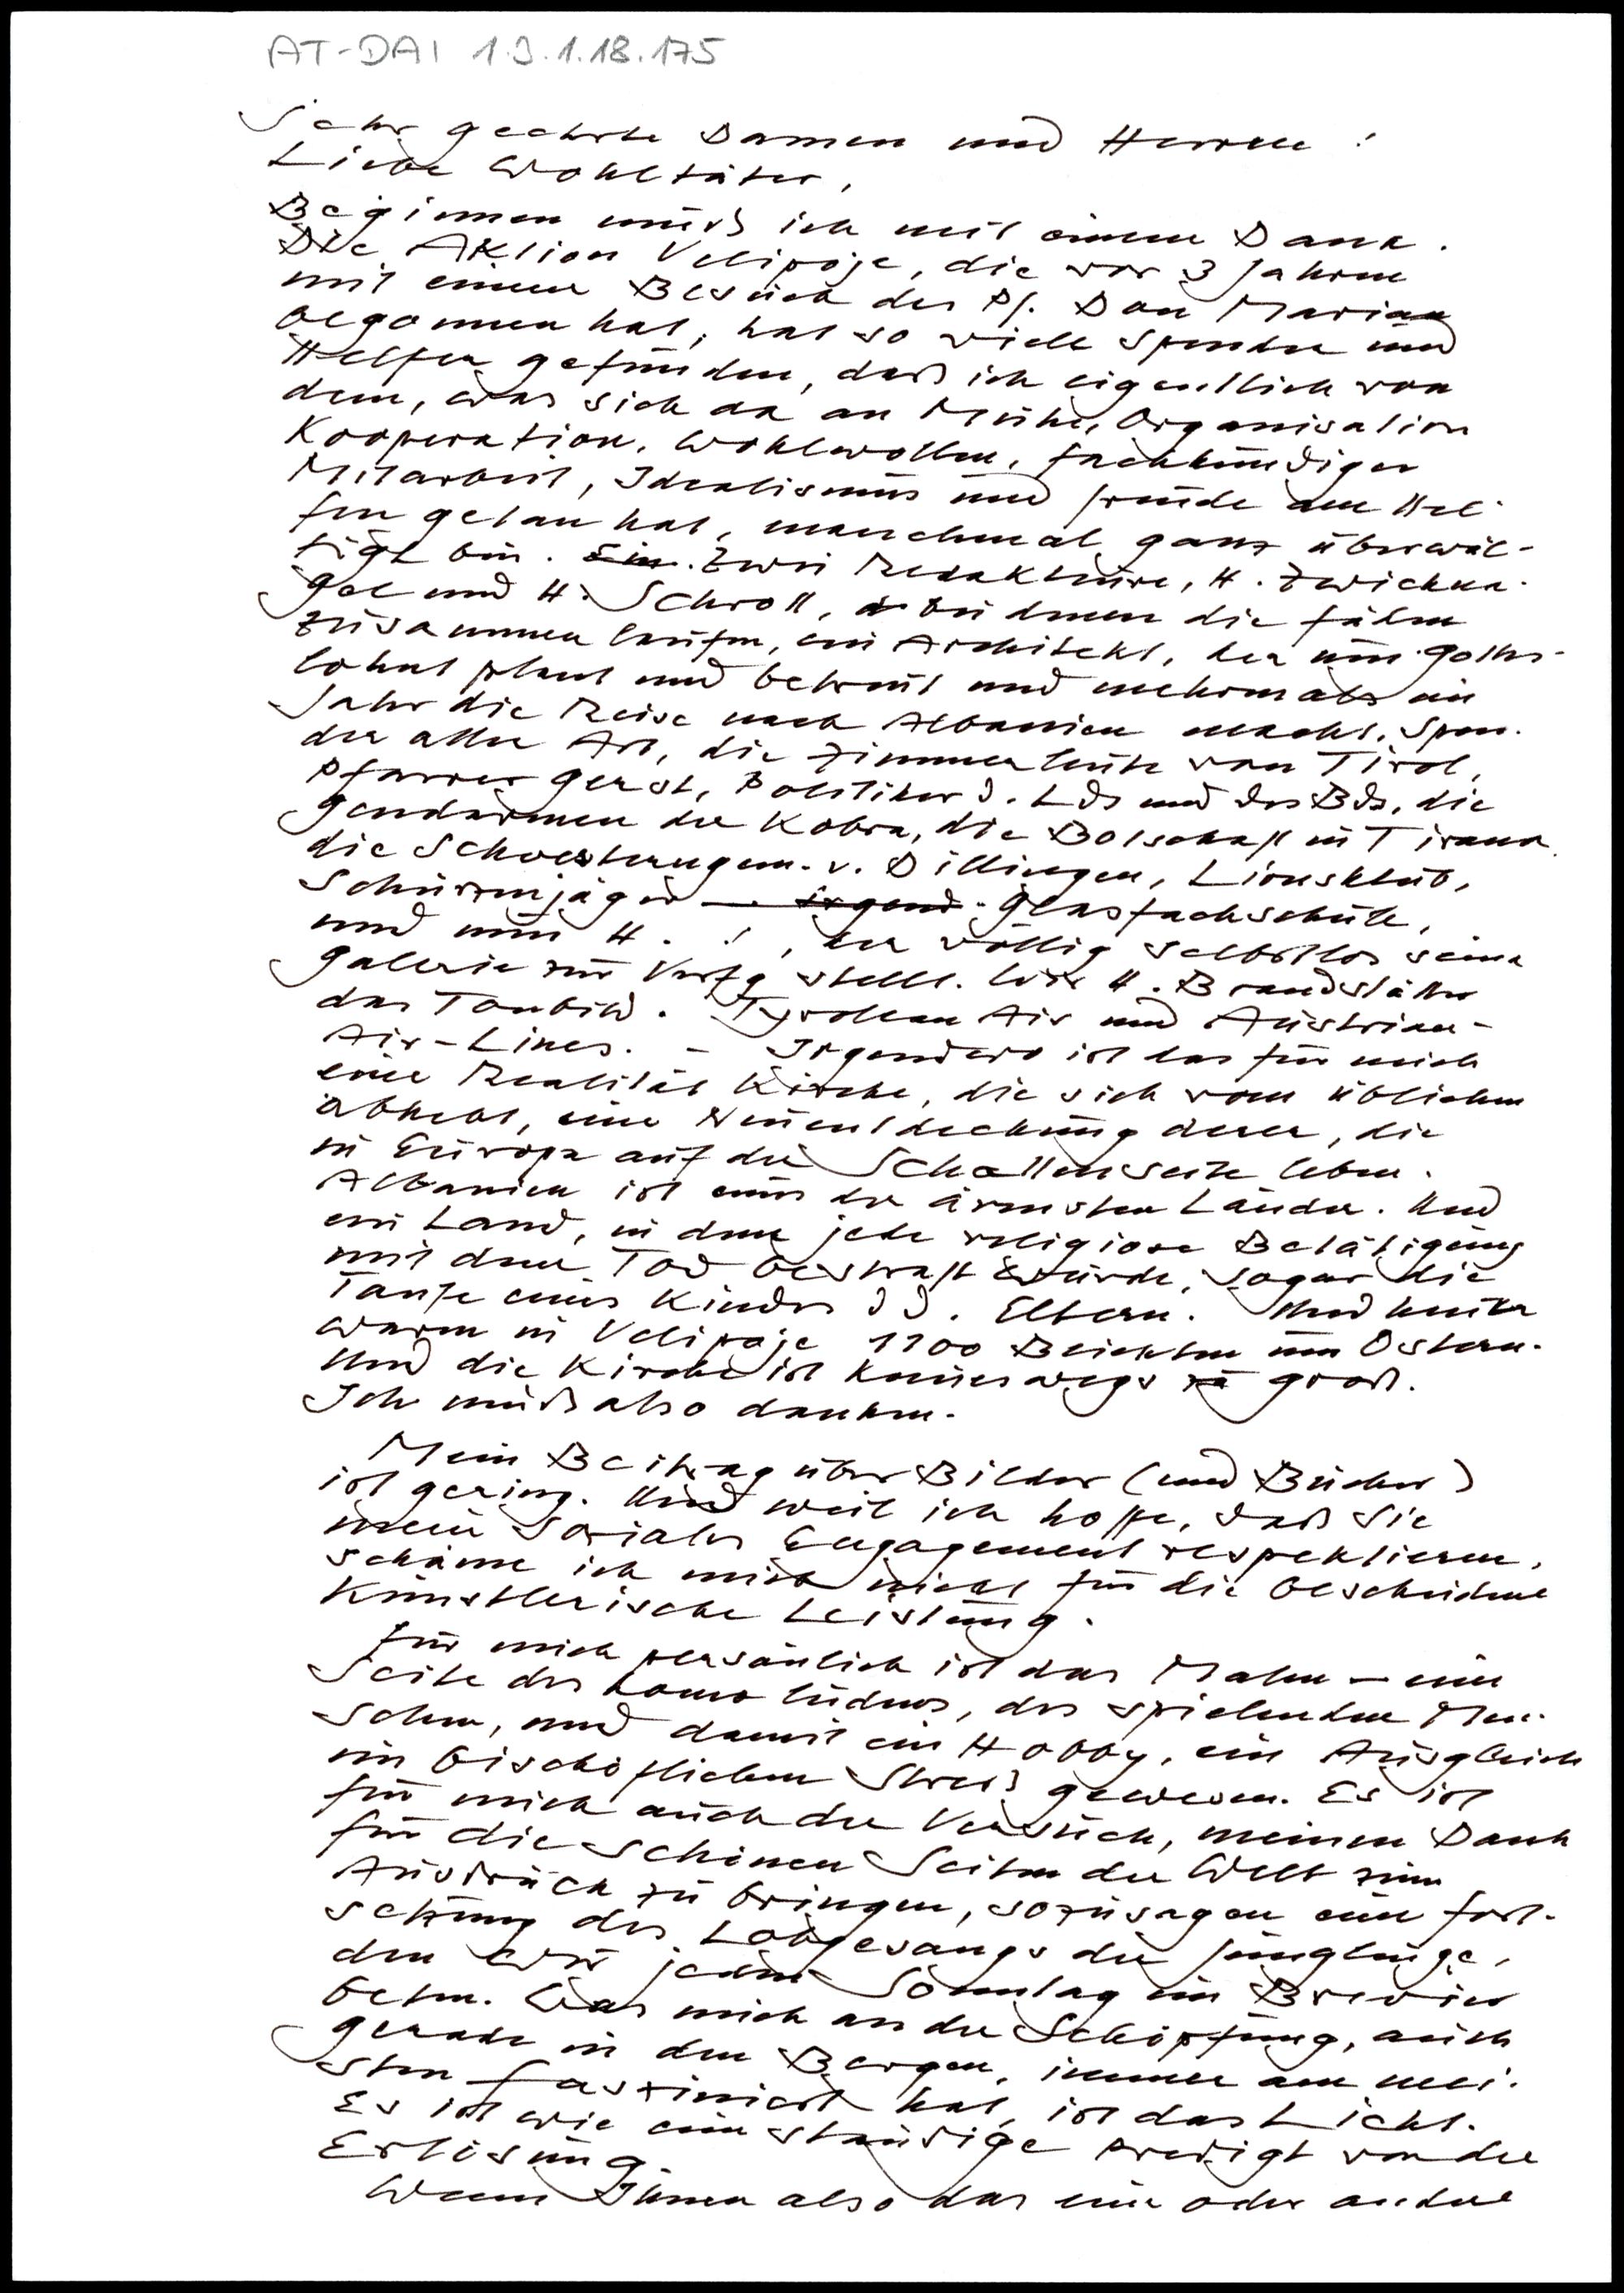 AT-DAI 1.3.1.18.175
Sehr geehrte Damen und Herren!
Liebe Wohltäter,
Beginnen muß ich mit einem Dank.
Die Aktion Velipoje, die vor 3 Jahren
mit einem Besuch des Pf. Don Marian
begonnen hat, hat so viele Spender und
Helfer gefunden, daß ich eigentlich von
dem, was sich da an Mühe, Organisation
Kooperation, Wohlwollen, fachkundiger
Mitarbeit, Idealismus und Freude am Hel-
fen getan hat, manchmal ganz überwäl-
tigt bin. Ein. Zwei Redakteure, H. Zwickna-
gel und H. Schroll, bei denen die Fäden
zusammen laufen, ein Architekt, der um Gottes-
lohn plant und betreut und mehrmals im
Jahr die Reise nach Albanien macht, Spen-
der aller Art, die Zimmerleute von Tirol,
Pfarrer Gerst, Politiker d. Lds und des Bds, die
Gendarmen der Kobra, die Botschaft in Tirana
die Schwesterngem. v. Dillingen, Lionsklub,
Schürzenjäger — irgend - Glasfachschule,
und nun H. !, der völlig selbstlos seine
Galerie zur Verfg stellt. Wie H. Brandstätter
das Tonbild. Tyrolean Air und Austrian-
Air-Lines. - Irgendwo ist das für mich
eine Realität Kirche, die sich vom üblichen
abhebt, eine Neuentdeckung derer, die
in Europa auf der Schattenseite leben.
Albanien ist eines der ärmsten Länder. Und
ein Land, in dem jede religiöse Betätigung
mit dem Tod bestraft wurde, sogar die
Taufe eines Kindes d d. Eltern. Und heuer
waren in Velipoje 1100 Beichten um Ostern.
Und die Kirche ist keineswegs zu groß.
Ich muß also danken.
Mein Beitrag über Bilder (und Bücher)
ist gering. Und weil ich hoffe, daß Sie
mein soziales Engagement respektieren,
schäme ich mich nicht für die bescheidene
künstlerische Leistung.
Für mich persönlich ist das Malen – eine
Seite des homo ludens, des spielenden Men-
schen, und damit ein Hobby, ein Ausgleich
im bischöflichen Streß gewesen. Es ist
für mich auch der Versuch, meinen Dank
für die schönen Seiten der Welt zum
Ausdruck zu bringen, sozusagen eine Fort-
setzung des Lobgesangs der Jünglinge,
den wir jeden Sonntag im Brevier
beten. Was mich an der Schöpfung, auch
gerade in den Bergen, immer am mei-
sten fasziniert hat, ist das Licht.
Es ist wie eine ständige Predigt von der
Erlösung.
Wenn Ihnen also das eine oder andere